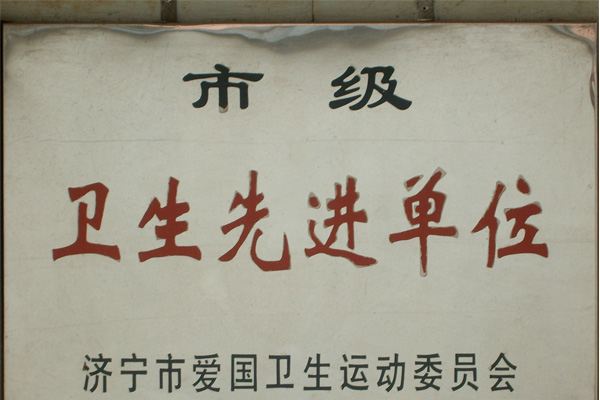 市级
卫生先进单位
济宁市爱国卫生运动委员会